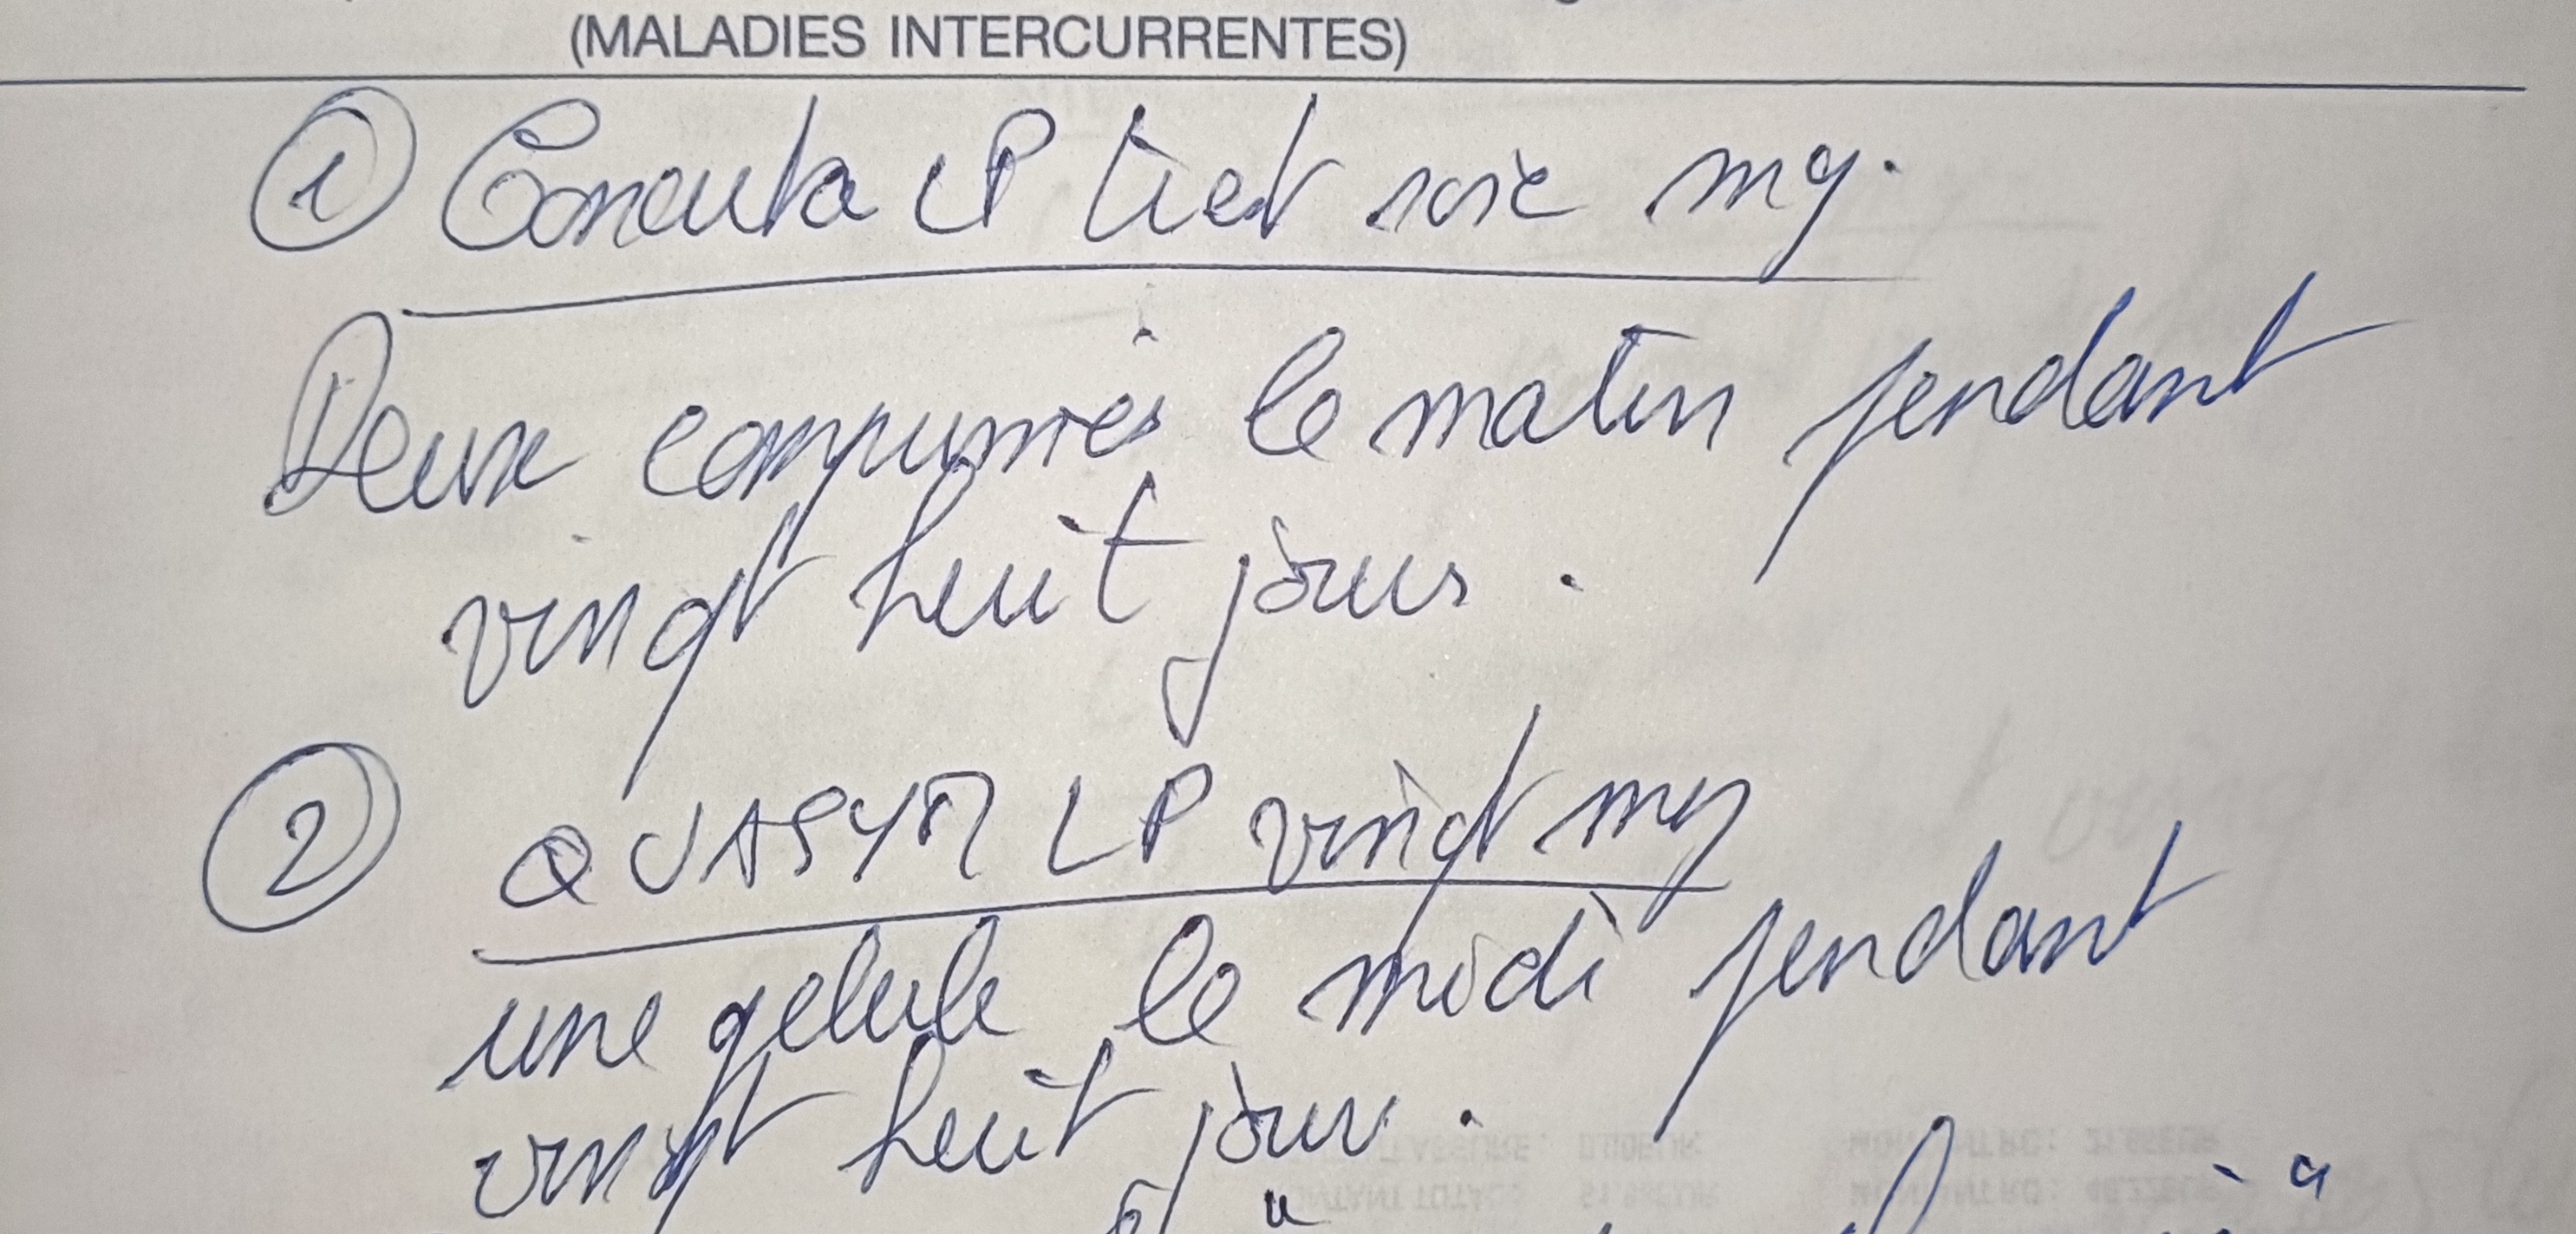 (MALADIES INTERCURRENTES)
① Concerta LP trente six mg.
Deux comprimés le matin pendant
vingt huit jours.
② QUASYM LP vingt mg
une gelule le midi pendant
vingt huit jours.